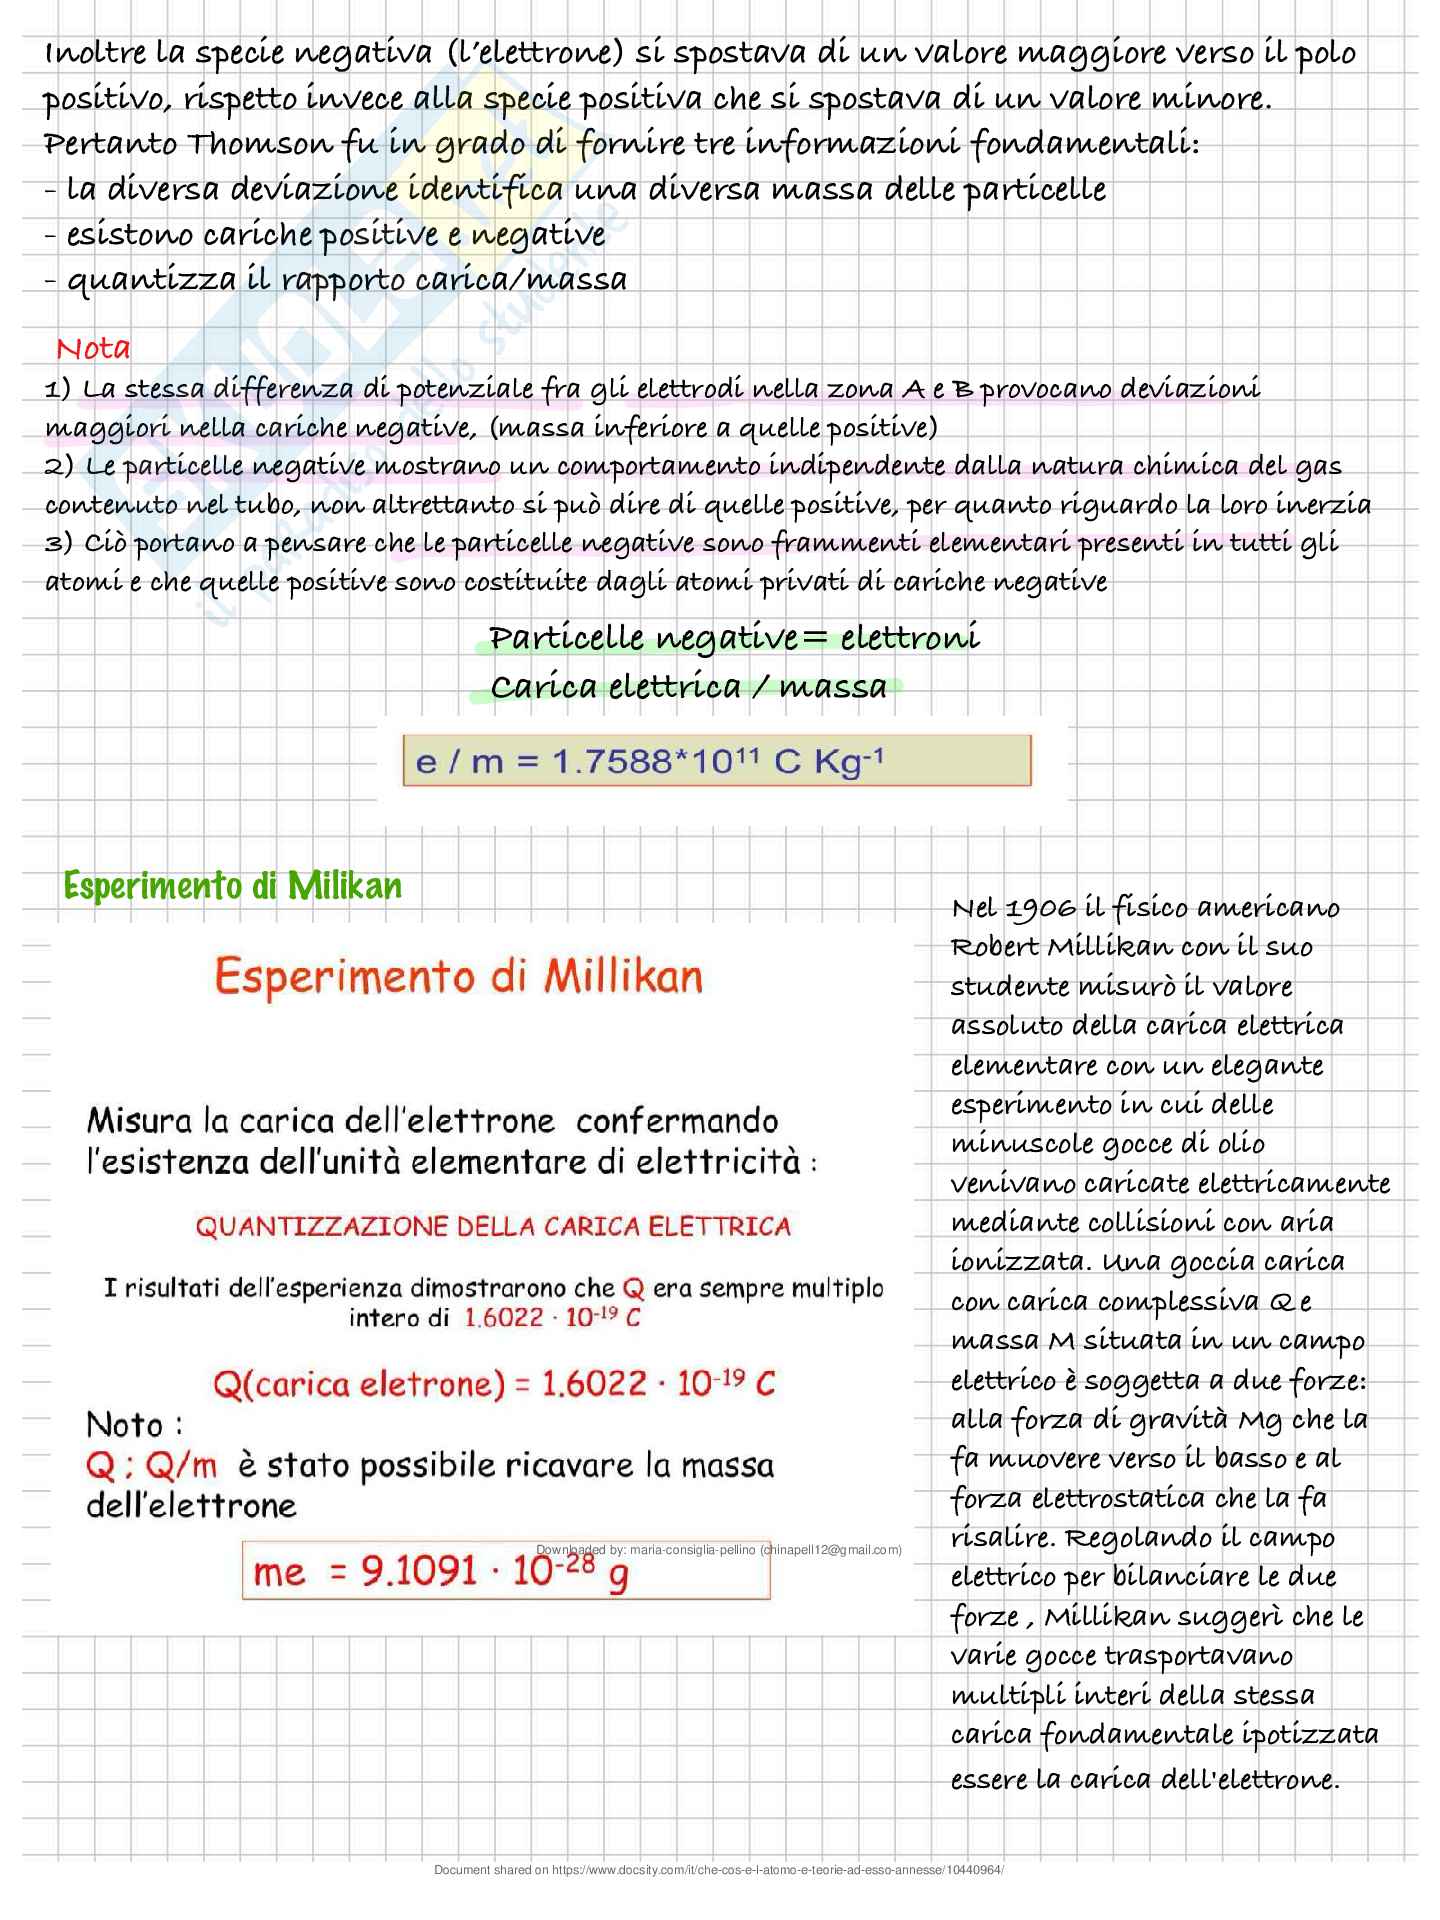 Inoltre la specie negativa (l'elettrone) si spostava di un valore maggiore verso il polo
positivo, rispetto invece alla specie positiva che si spostava di un valore minore.
Pertanto Thomson fu in grado di fornire tre informazioni fondamentali:
- la diversa deviazione identifica una diversa massa delle particelle
- esistono cariche positive e negative
- quantizza il rapporto carica/massa
Nota
1) La stessa differenza di potenziale fra gli elettrodi nella zona A e B provocano deviazioni
maggiori nella cariche negative, (massa inferiore a quelle positive)
2) Le particelle negative mostrano un comportamento indipendente dalla natura chimica del gas
contenuto nel tubo, non altrettanto si può dire di quelle positive, per quanto riguardo la loro inerzia
3) Ciò portano a pensare che le particelle negative sono frammenti elementari presenti in tutti gli
atomi e che quelle positive sono costituite dagli atomi privati di cariche negative
Particelle negative= elettroni
Carica elettrica / massa
e / m = 1.7588*10¹¹ C Kg⁻¹
Esperimento di Milikan
Esperimento di Millikan
Misura la carica dell'elettrone confermando
l'esistenza dell'unità elementare di elettricità :
QUANTIZZAZIONE DELLA CARICA ELETTRICA
I risultati dell'esperienza dimostrarono che Q era sempre multiplo
intero di 1.6022 · 10⁻¹⁹ C
Q(carica eletrone) = 1.6022 · 10⁻¹⁹ C
Noto :
Q ; Q/m è stato possibile ricavare la massa
dell'elettrone
me = 9.1091 · 10⁻²⁸ g
Downloaded by: maria-consiglia-pellino (chinapell12@gmail.com)
Nel 1906 il fisico americano
Robert Millikan con il suo
studente misurò il valore
assoluto della carica elettrica
elementare con un elegante
esperimento in cui delle
minuscole gocce di olio
venivano caricate elettricamente
mediante collisioni con aria
ionizzata. Una goccia carica
con carica complessiva Q e
massa M situata in un campo
elettrico è soggetta a due forze:
alla forza di gravità Mg che la
fa muovere verso il basso e al
forza elettrostatica che la fa
risalire. Regolando il campo
elettrico per bilanciare le due
forze , Millikan suggerì che le
varie gocce trasportavano
multipli interi della stessa
carica fondamentale ipotizzata
essere la carica dell'elettrone.
Document shared on https://www.docsity.com/it/che-cos-e-l-atomo-e-teorie-ad-esso-annesse/10440964/